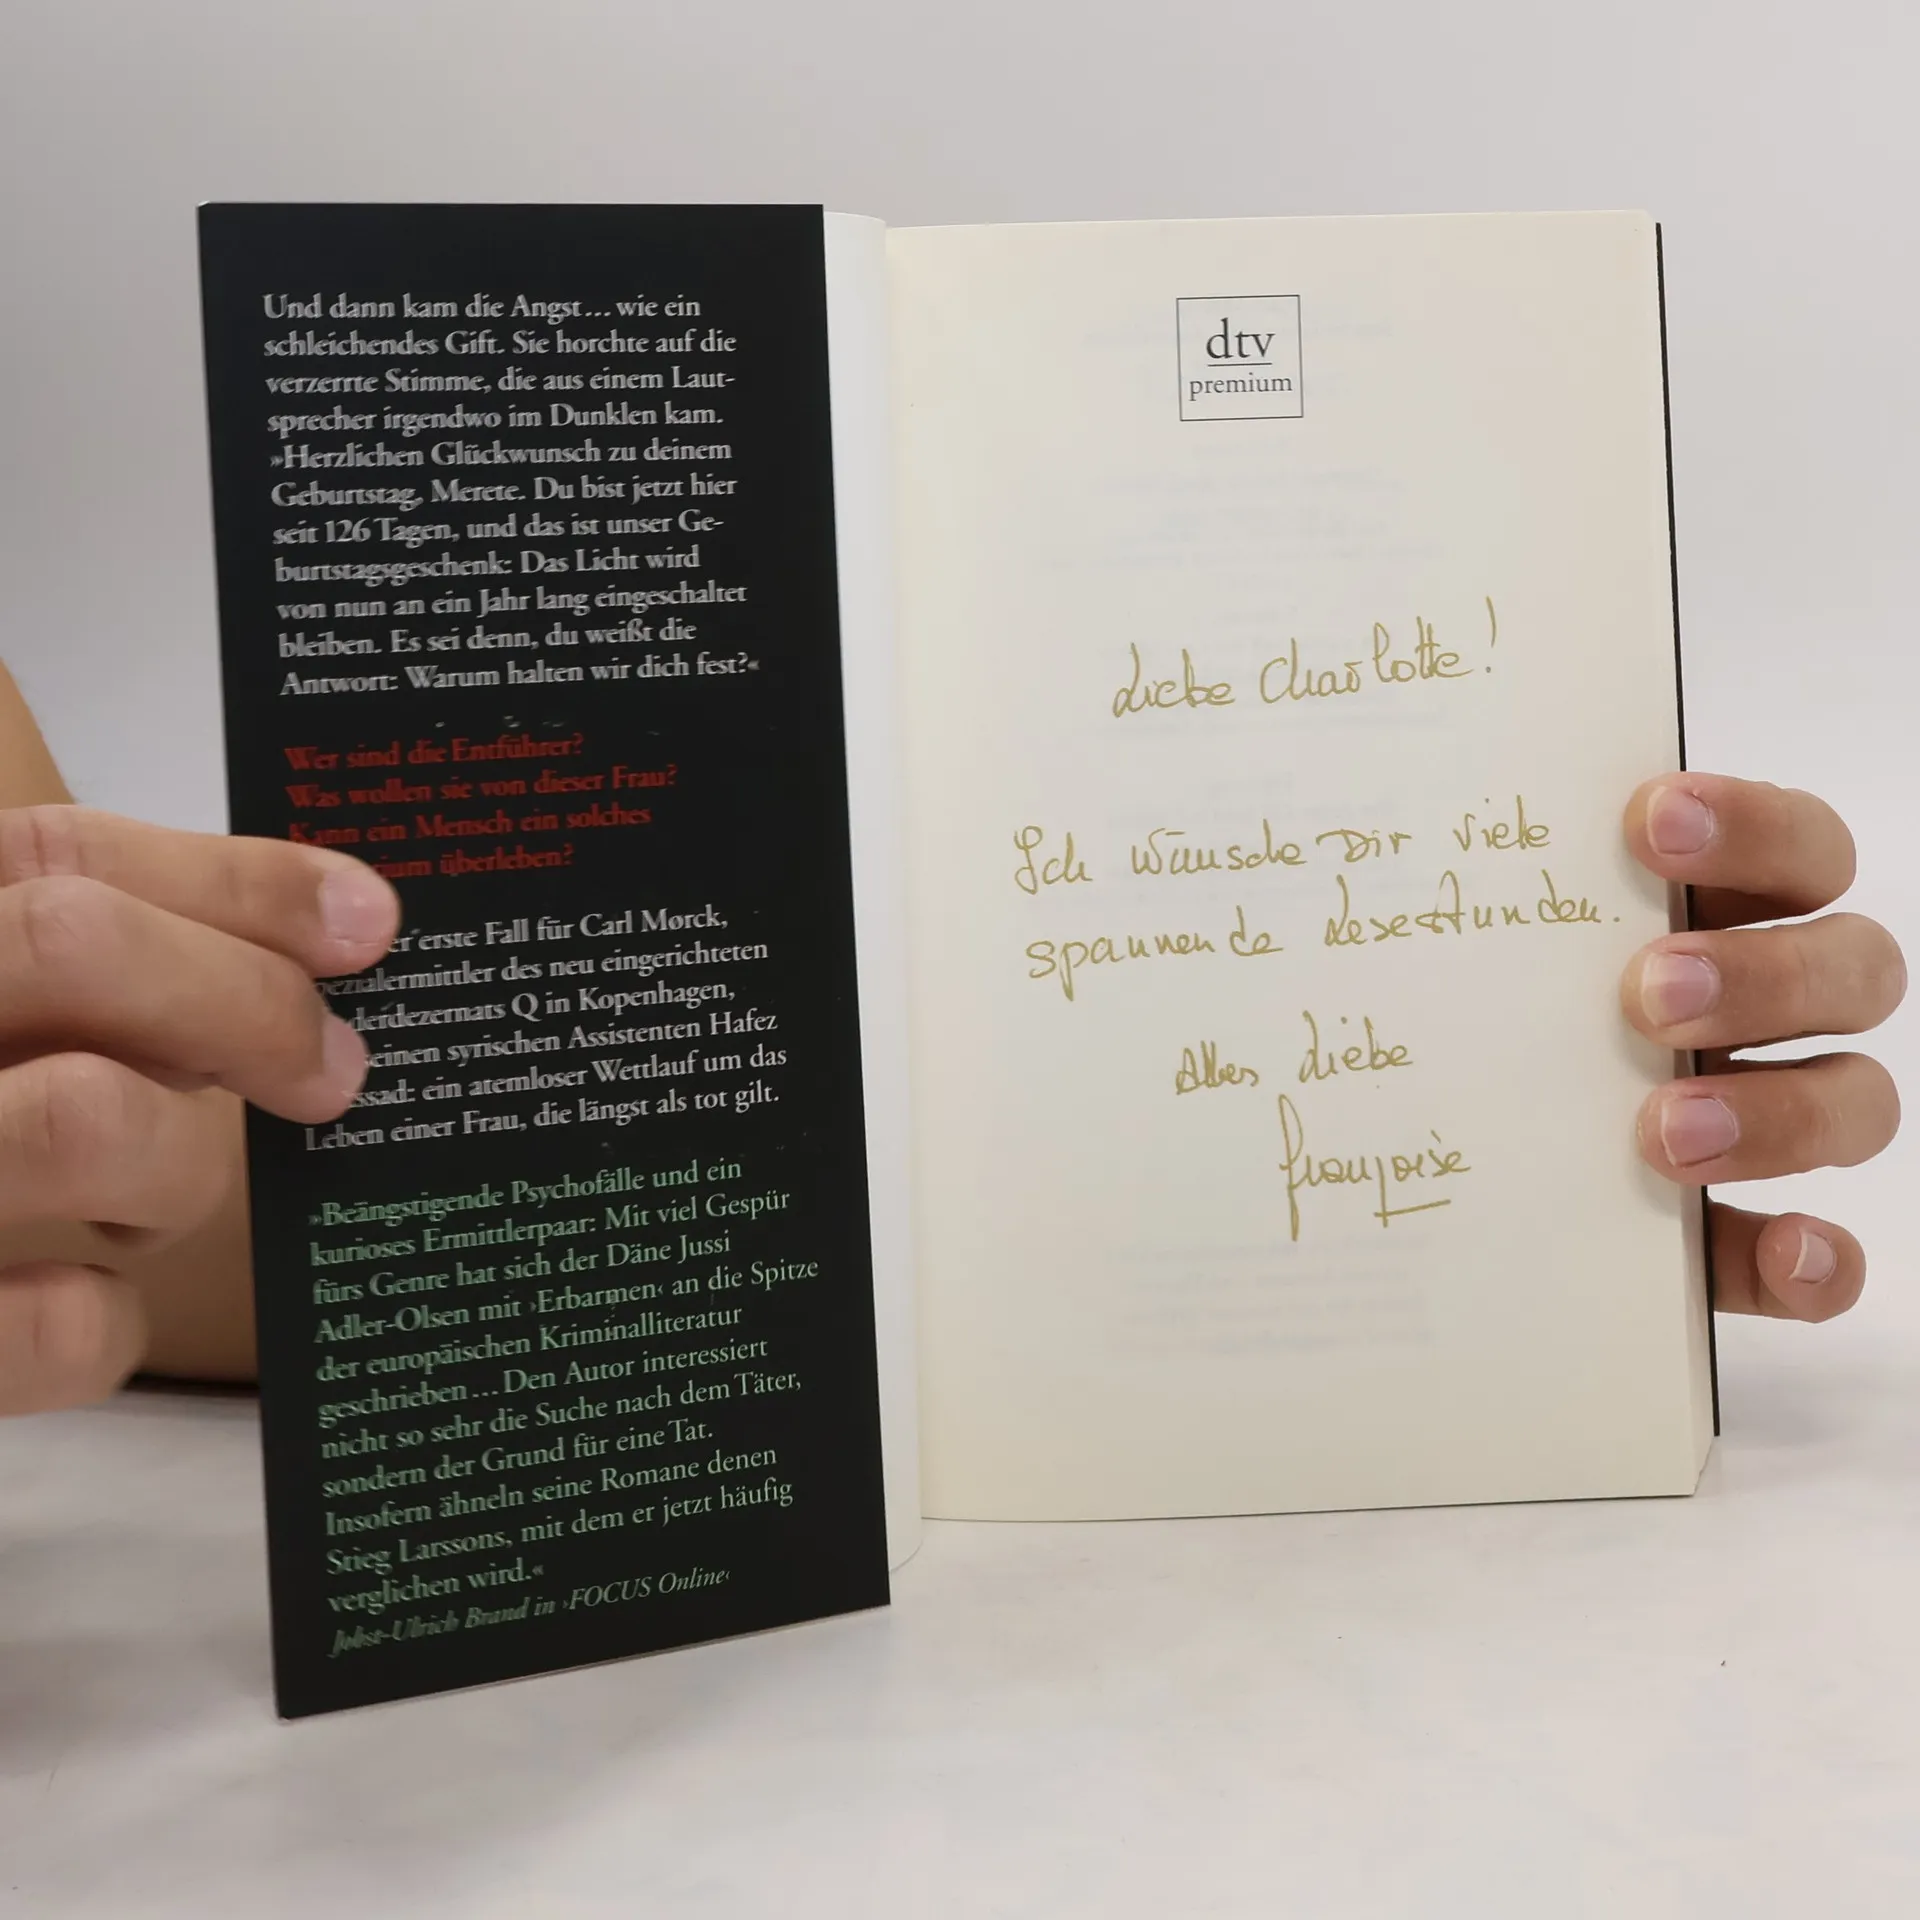 Und dann kam die Angst... wie ein
schleichendes Gift. Sie horchte auf die
verzerrte Stimme, die aus einem Laut-
sprecher irgendwo im Dunklen kam.
»Herzlichen Glückwunsch zu deinem
Geburtstag, Merete. Du bist jetzt hier
seit 126 Tagen, und das ist unser Ge-
burtstagsgeschenk: Das Licht wird
von nun an ein Jahr lang eingeschaltet
bleiben. Es sei denn, du weißt die
Antwort: Warum halten wir dich fest?«
Wer sind die Entführer?
Was wollen sie von dieser Frau?
Kann ein Mensch ein solches
ium überleben?
er erste Fall für Carl Mørck,
pezialermittler des neu eingerichteten
derdezernats Q in Kopenhagen,
seinen syrischen Assistenten Hafez
ssad: ein atemloser Wettlauf um das
Leben einer Frau, die längst als tot gilt.
»Beängstigende Psychofälle und ein
kurioses Ermittlerpaar: Mit viel Gespür
fürs Genre hat sich der Däne Jussi
Adler-Olsen mit ›Erbarmen‹ an die Spitze
der europäischen Kriminalliteratur
geschrieben... Den Autor interessiert
nicht so sehr die Suche nach dem Täter,
sondern der Grund für eine Tat.
Insofern ähneln seine Romane denen
Stieg Larssons, mit dem er jetzt häufig
verglichen wird.«
Jobst-Ulrich Brand in ›FOCUS Online‹
dtv
premium
Liebe Charlotte!
Ich wünsche Dir viele
spannende Lesestunden.
Alles Liebe
Françoise